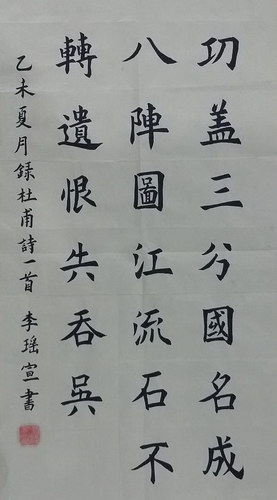 功盖三分國名成
八陣圖江流石不
轉遺恨失吞吳
乙未夏月録杜甫詩一首 李瑶宣書